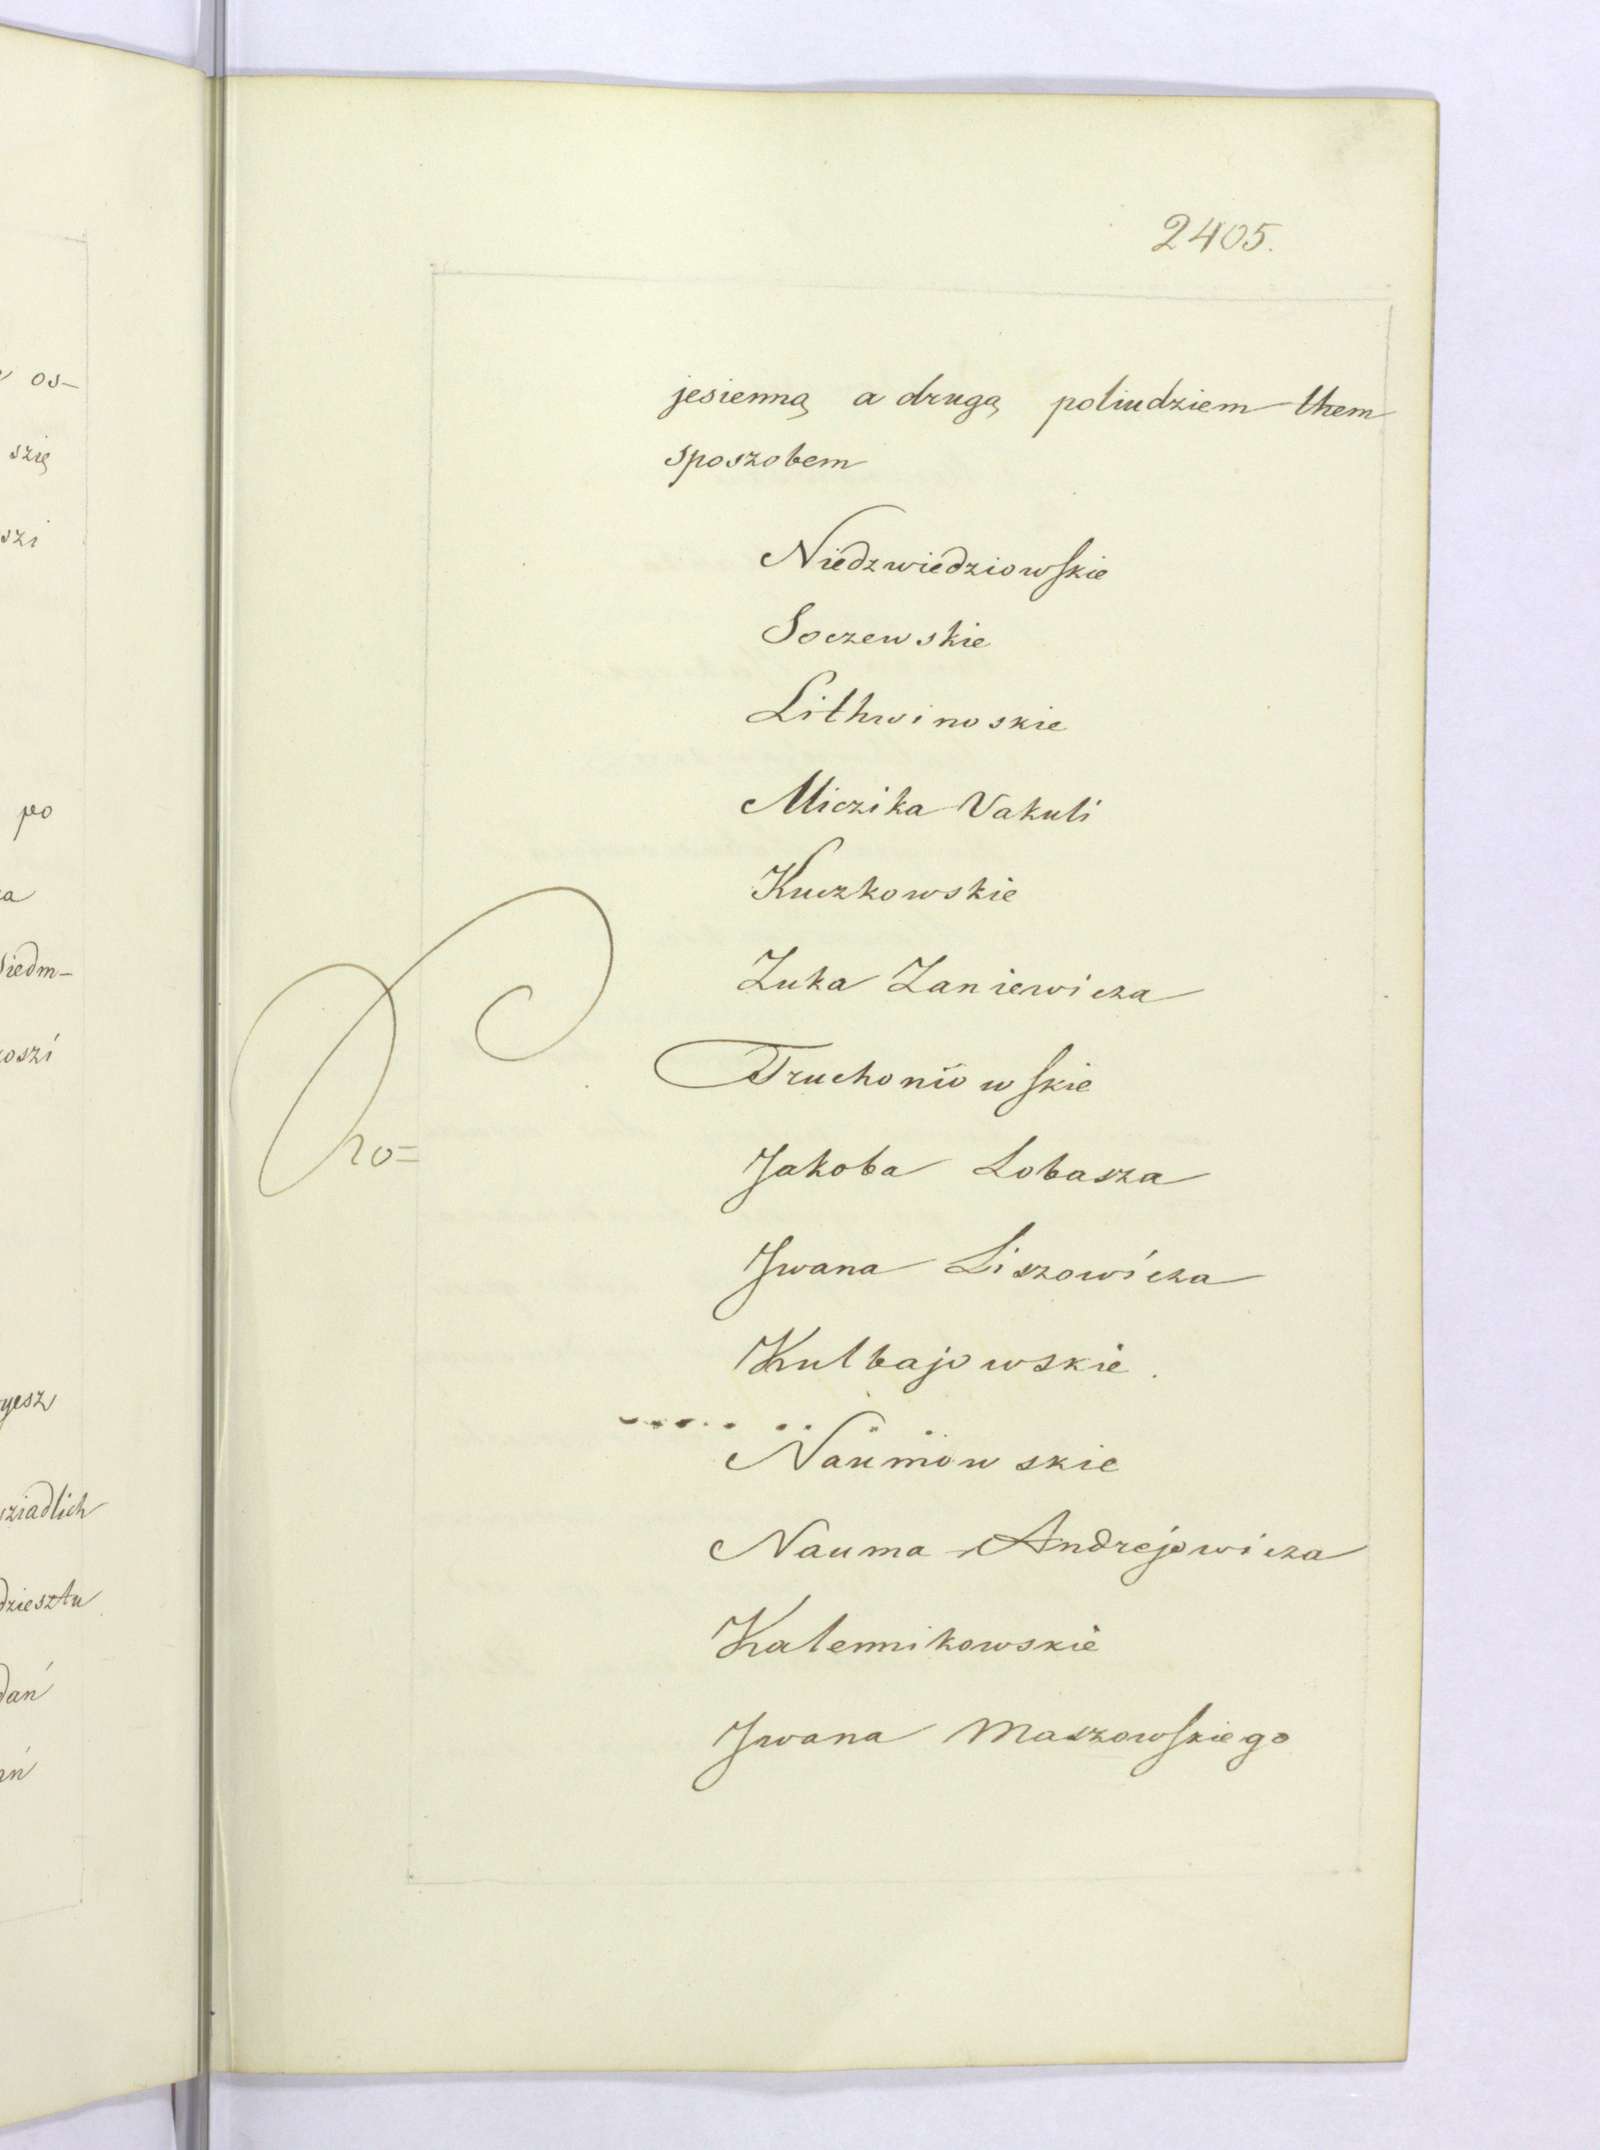 2405.
os-
szię
szi
po
a
siedm-
koszi
yesz
sziadlich
dziesztu
dań
ań
jesienną a drugą poliudziem them
sposzobem
Niedzwiedziowskie
Soczewskie
Lithwinoskie
Miczika Vakuli
Kuczkowskie
Zuka Zaniewicza
Truchoniowskie
Jakoba Lobasza
Jwana Liszowicza
Kulbajowskie
Naumowskie
Nauma Andrejowicza
Kalennikowskie
Jwana Maszowskiego